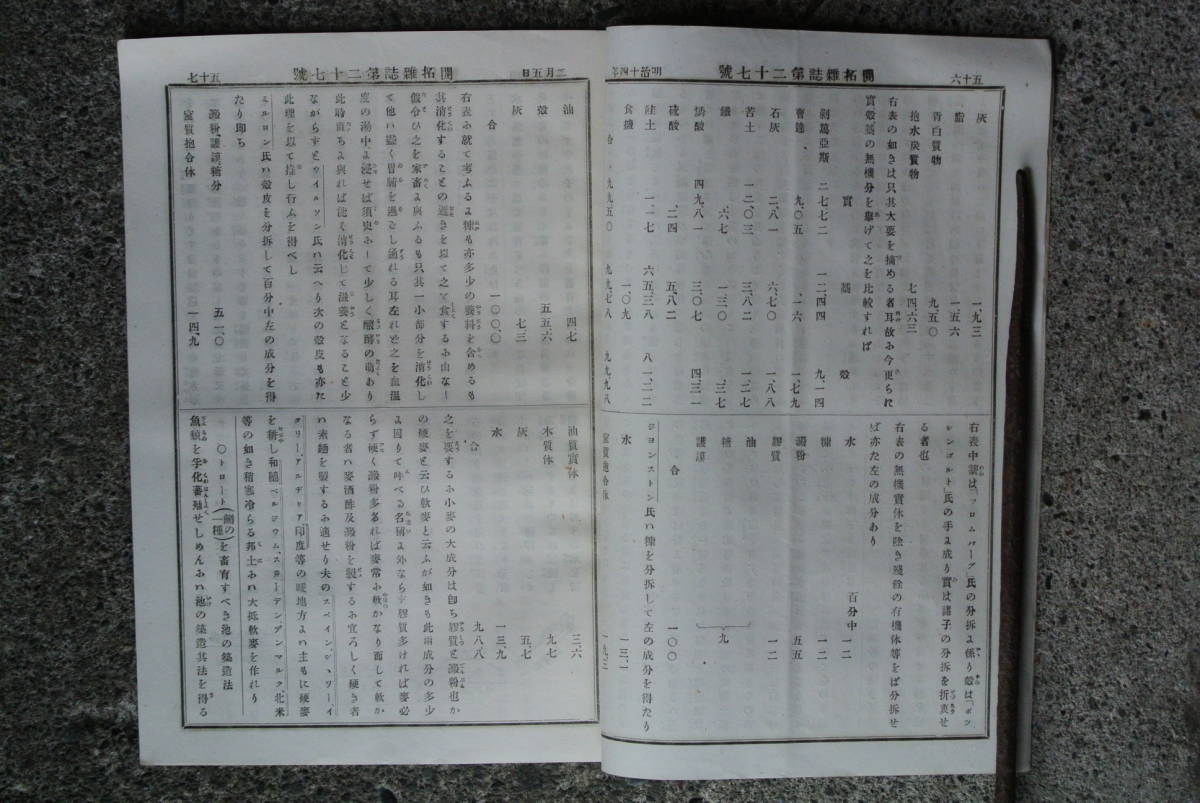 五十六
開拓雜誌第二十七號
明治十四年
灰　一、九三
脂　一、五六
蛋白質物　九、五〇
抱水炭質物　七四、六三
右表の如きは只其大要を摘める者耳故ふ今更られ
實殼藁の無機分を擧げて之を比較すれば
實　藁　殼
剥篤亞斯　二七、七二　一二、四四　九、一四
曹達　九、〇五　、一六　一、七九
石灰　二、八一　六、七〇　一、八八
苦土　一二、〇三　三、八二　一、二七
鐵　、六七　一、三〇　、三七
燐酸　四九、八一　三、〇七　四、三一
硫酸　、二四　五、八二
硅土　一、一七　六五、三八　八一、二二
食鹽　一、〇九
合　九九、五〇　九九、七八　九九、九八
右表中藁は「フロムバーグ」氏の分拆よ係り殼は「ボツ
シンゴルト」氏の手よ成り實は諸子の分拆を折衷せ
る者也
右表の無機實体を除き殘餘の有機体等をば分拆せ
ば亦た左の成分あり
百分中
水　一二
糠　一二
澱粉　五五
膠質　一二
油
糖　九
護謨
合　一〇〇
ジヨンストン氏ハ糠を分拆して左の成分を得たり
水　一三、一
窒質抱合体　一九、三
五十七
開拓雜誌第二十七號
三月五日
油　四、七
殼　五五、六
灰　七、三
合　一〇〇、〇
右表ふ就て考ふるよ糠も亦多少の養料を含めるも
其消化することの遲きを以て之を食するふ由なー
假令ひ之を家畜よ與ふるも只其一小部分を消化し
て他ハ盡く胃膓を過ぎし通れる耳左れど之を血温
度の湯中よ浸せば須臾ふーて少しく醗酵の萌あり
此時直ちよ與れば能く消化して滋養となること少
ながらずとウイルソン氏ハ云へり次の殼皮も亦た
此理を以て推し行ふを得べし
ミルロン氏ハ殼皮を分拆して百分中左の成分を得
たり即ち
澱粉、護謨糖分　五一、〇
窒質抱合体　一四、九
油質實体　三、六
木質体　九、七
灰　五、七
水　一三、九
合　九八、八
之を要するふ小麥の大成分は即ち膠質と澱粉也か
の硬麥と云ひ軟麥と云ふが如きも此兩成分の多少
よ因りて呼べる名稱よ外ならず膠質多ければ麥必
らず硬く澱粉多ければ麥常ふ軟かなり而して軟か
なる者ハ麥酒酢及澱粉を製するふ宜ろしく硬き者
ハ素麵を製するふ適せり夫のスペイン、シヽリー、イ
タリー、アルゼリア印度等の暖地方よハ主もに硬麥
を耕し和蘭ベルジウム、スヨーデン、デンマルク、北米
等の如き稍寒冷らる邦土ふハ大抵軟麥を作れり
〇トロート（鱒の一種）を畜育すべき池の築造法
魚類を孚化蕃殖せしめんふハ池の築造其法を得る